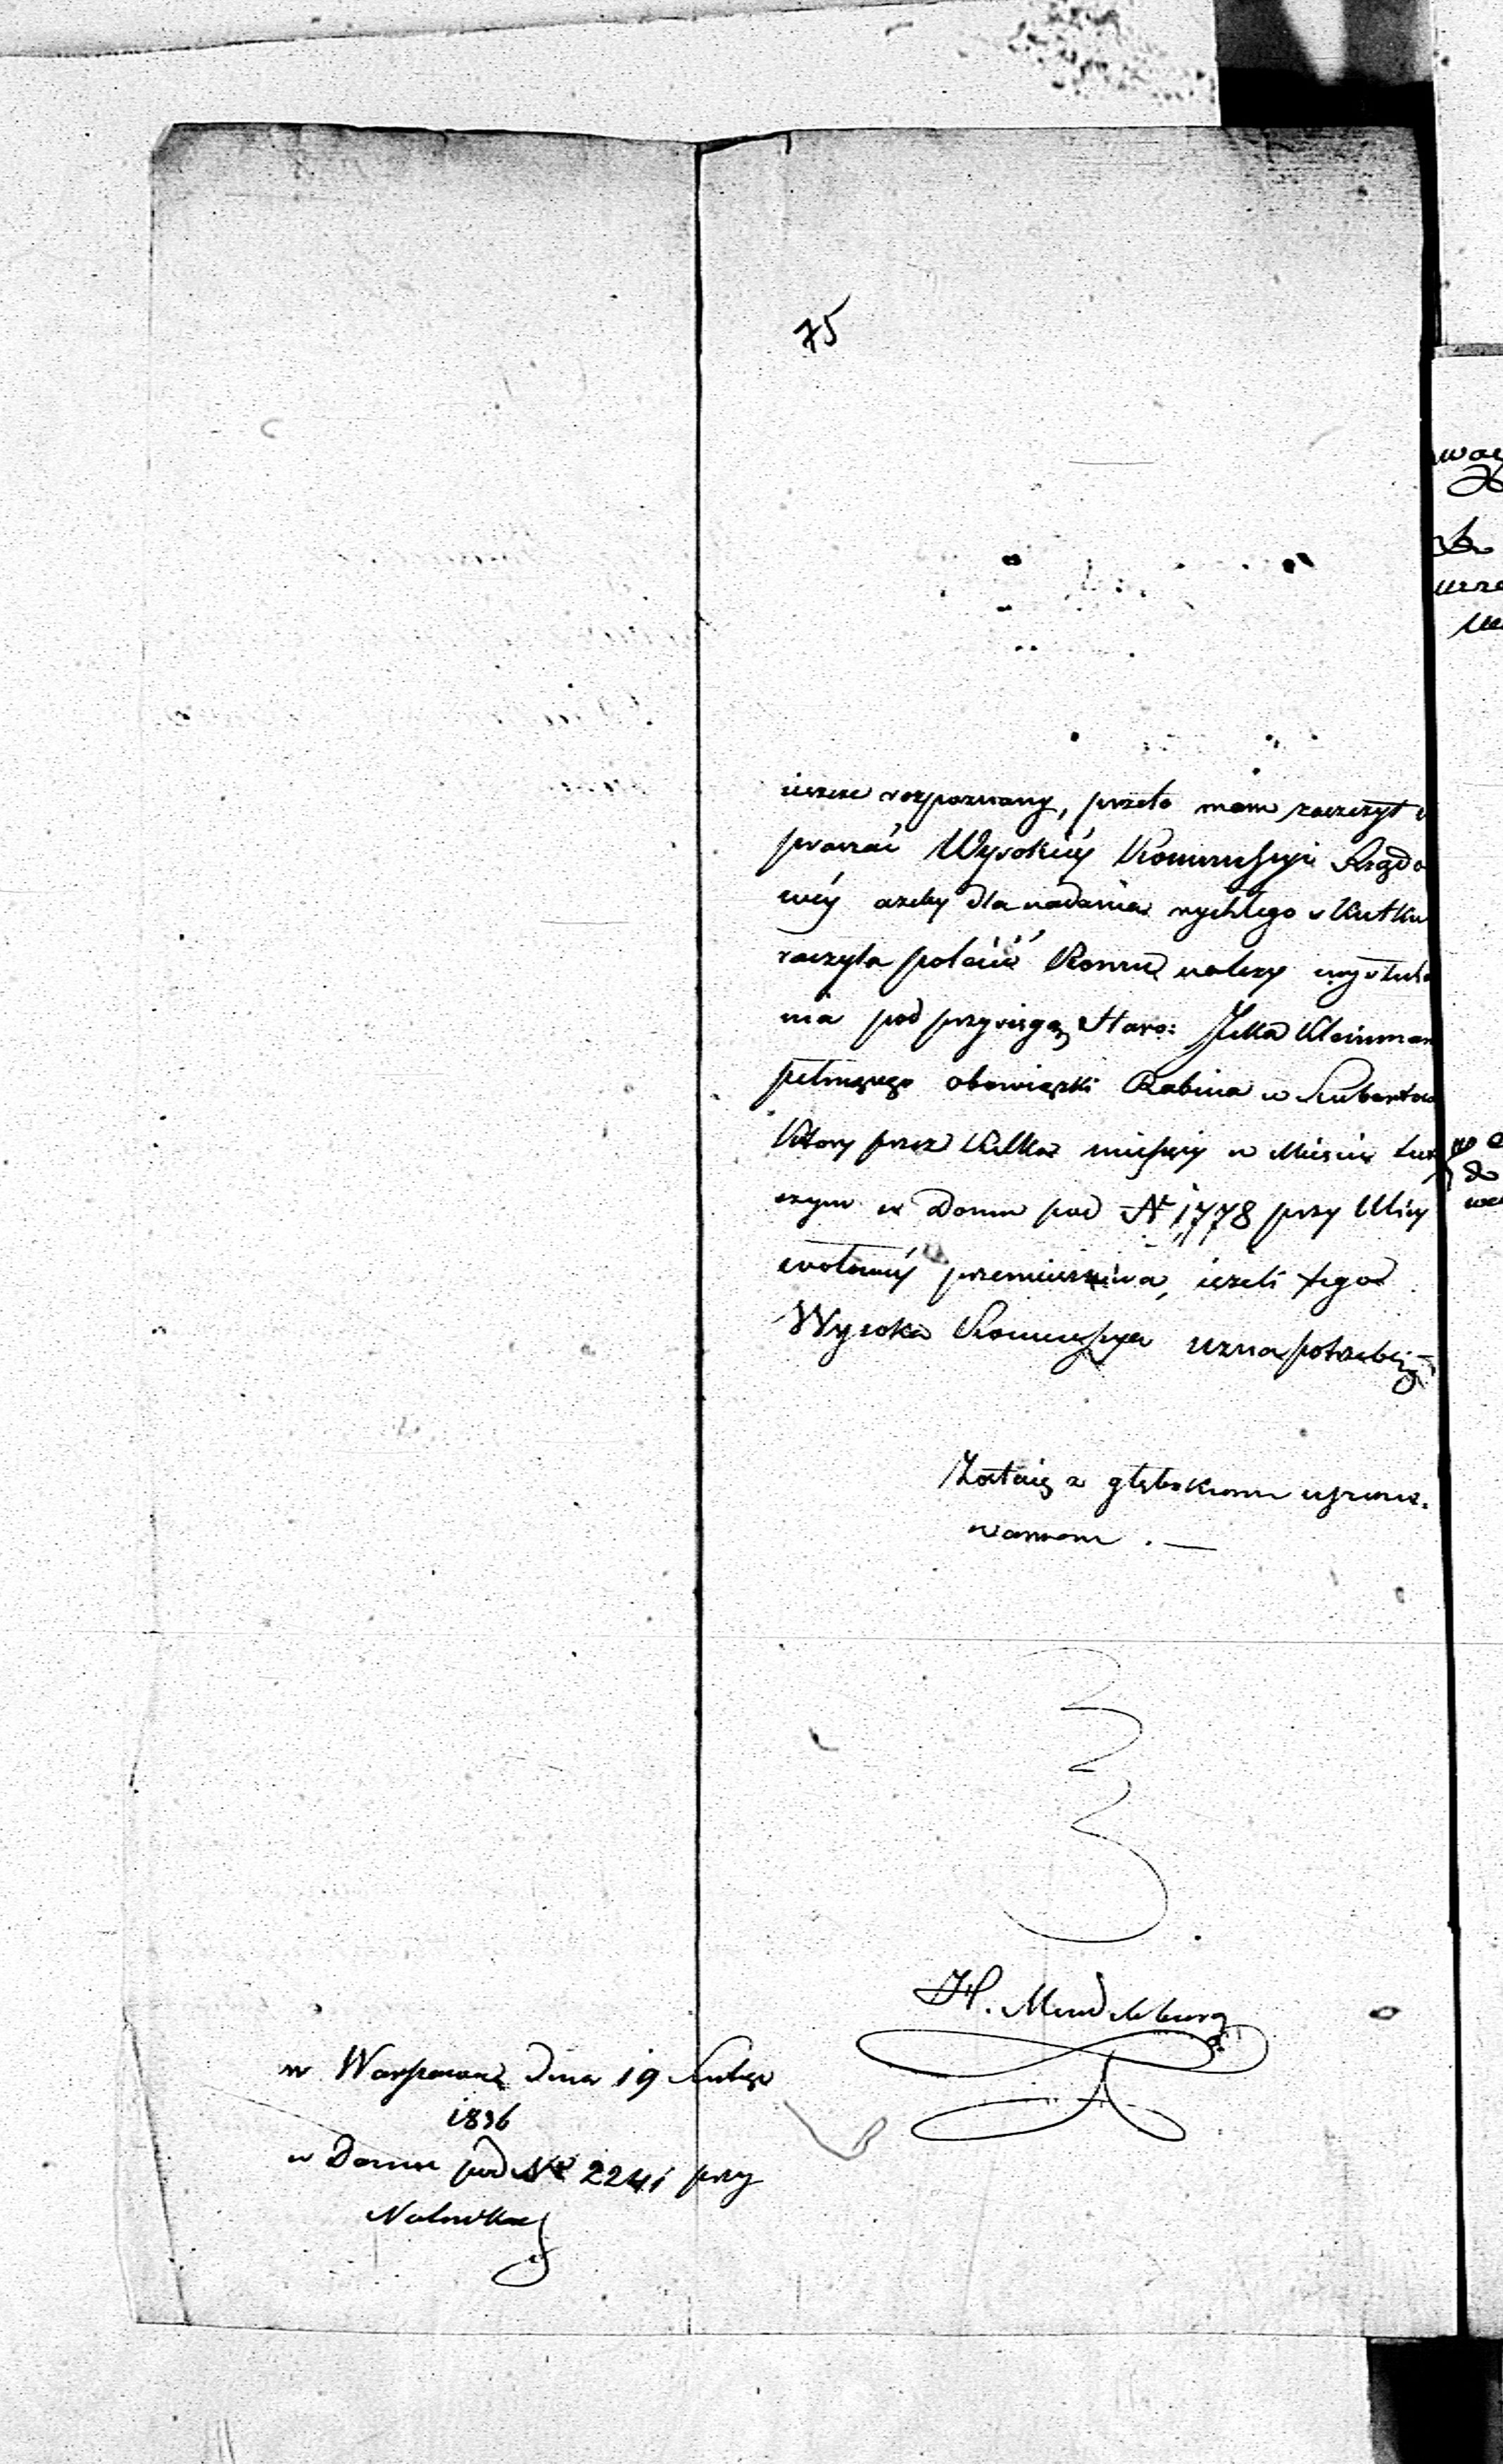 75
ieszcze rozpoznany, przeto mam zaszczyt
prosić Wysokiéy Kommissyi Rządo
wéy ażeby dla nadania rychłego skutku
raczyła polecić Komu należy wysłucha
nia pod przysięgą Staro: Jcka Kleinman
pełniącego obowiązki Rabina w Lubartow
który przez kilka miesięcy w Mieście tut
szym w Domu pod N 1778 przy Ulicy
przemieszkiwa, ieżeli tego
Wysoka Kommissya uzna potrzebę
Zostaię z głębokiem uszano.
waniem . —
H. Mendelsburg
w Warszawie Dnia 19 Lutego
1836
w Domu pod Nr 2241 przy
Nalewkach